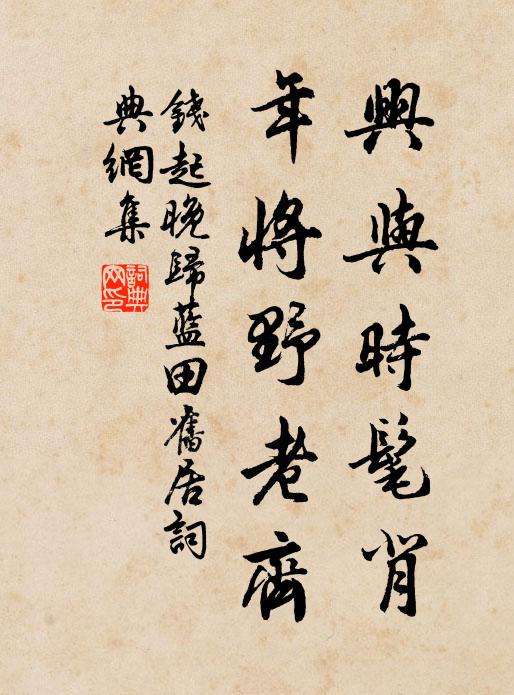 興與時髦背
年將野老齊
錢起晚歸藍田舊居詞
典網集
詞典
网印